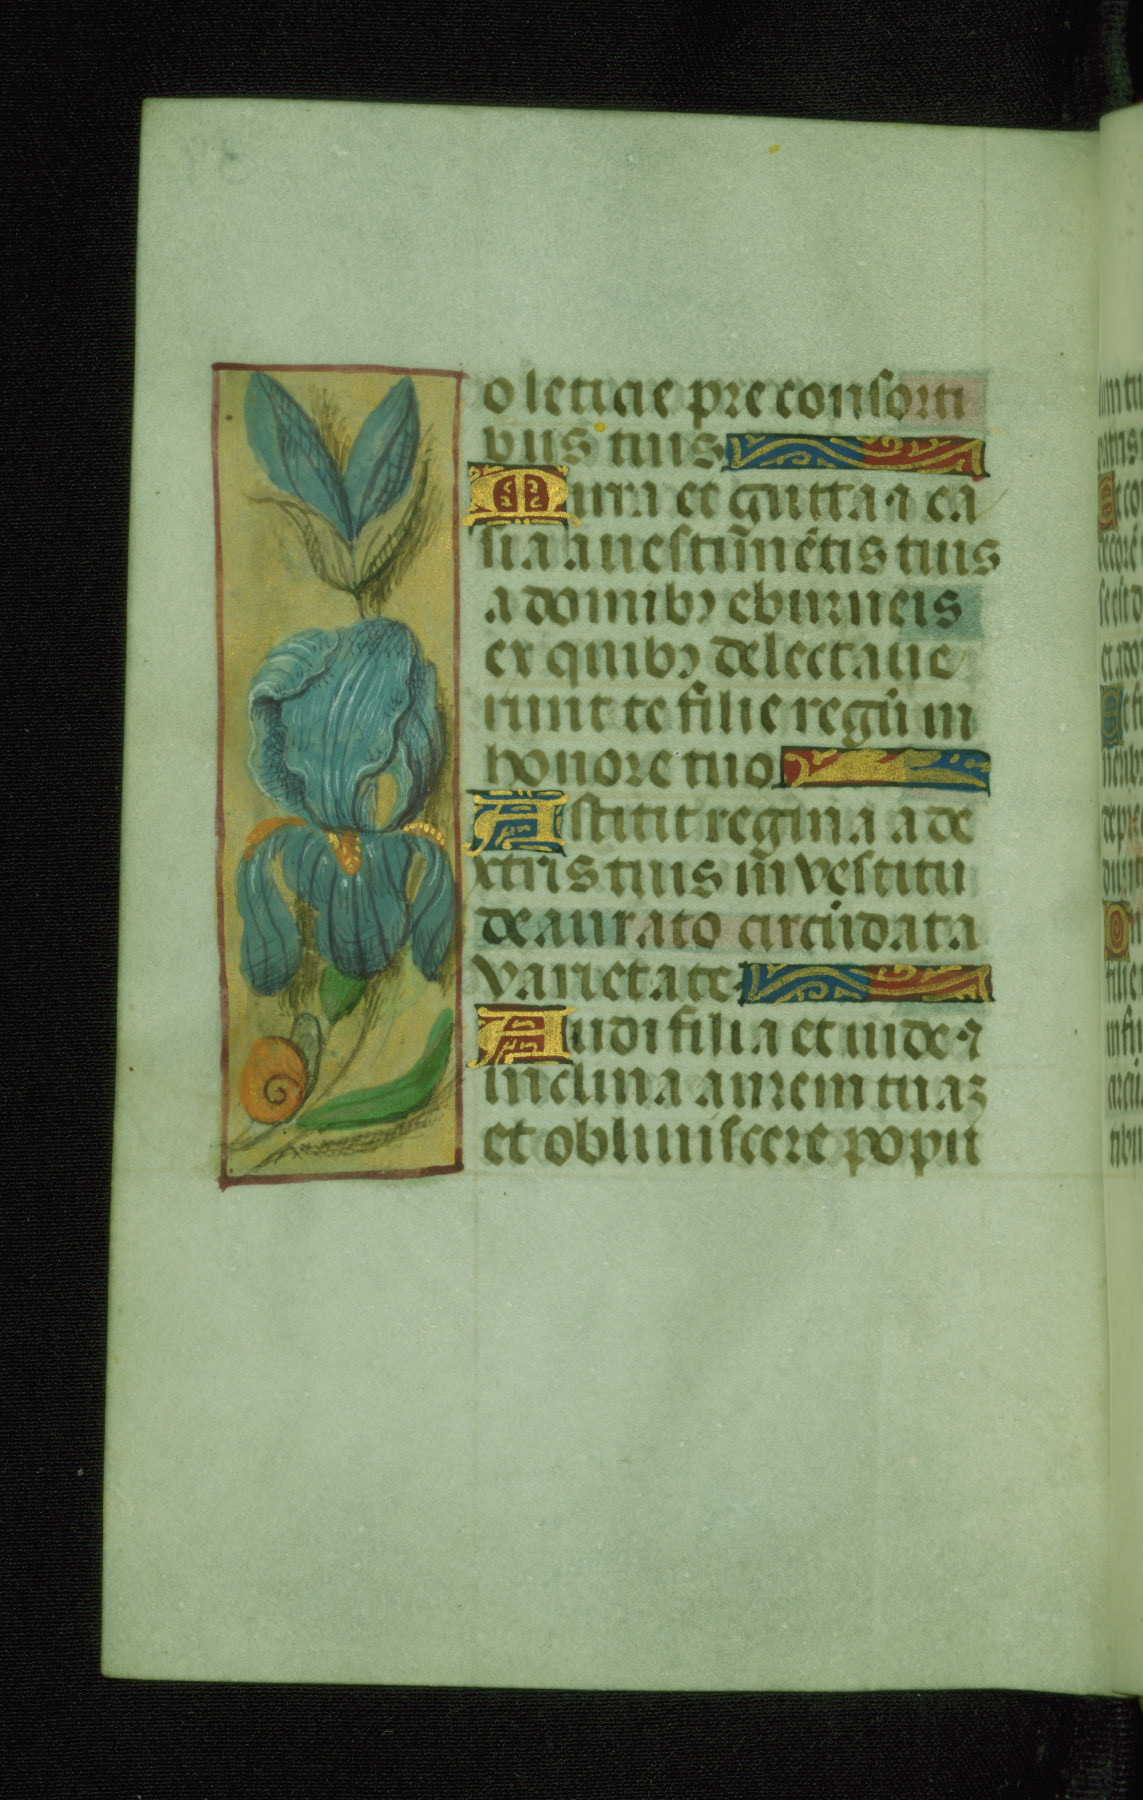 o leticie pre consorti
bus tuis
Mirra et gutta ⁊ ca
sia a uestim̄ētis tuis
a domibꝫ eburneis
ex quibꝫ delectaue
runt te filie regū in
honore tuo
Astitit regina a de
xtris tuis in̄ vestitu
deaurato circūdata
varietate
Audi filia et uide ⁊
inclina aurem tuaꝫ
et obliuiscere popu